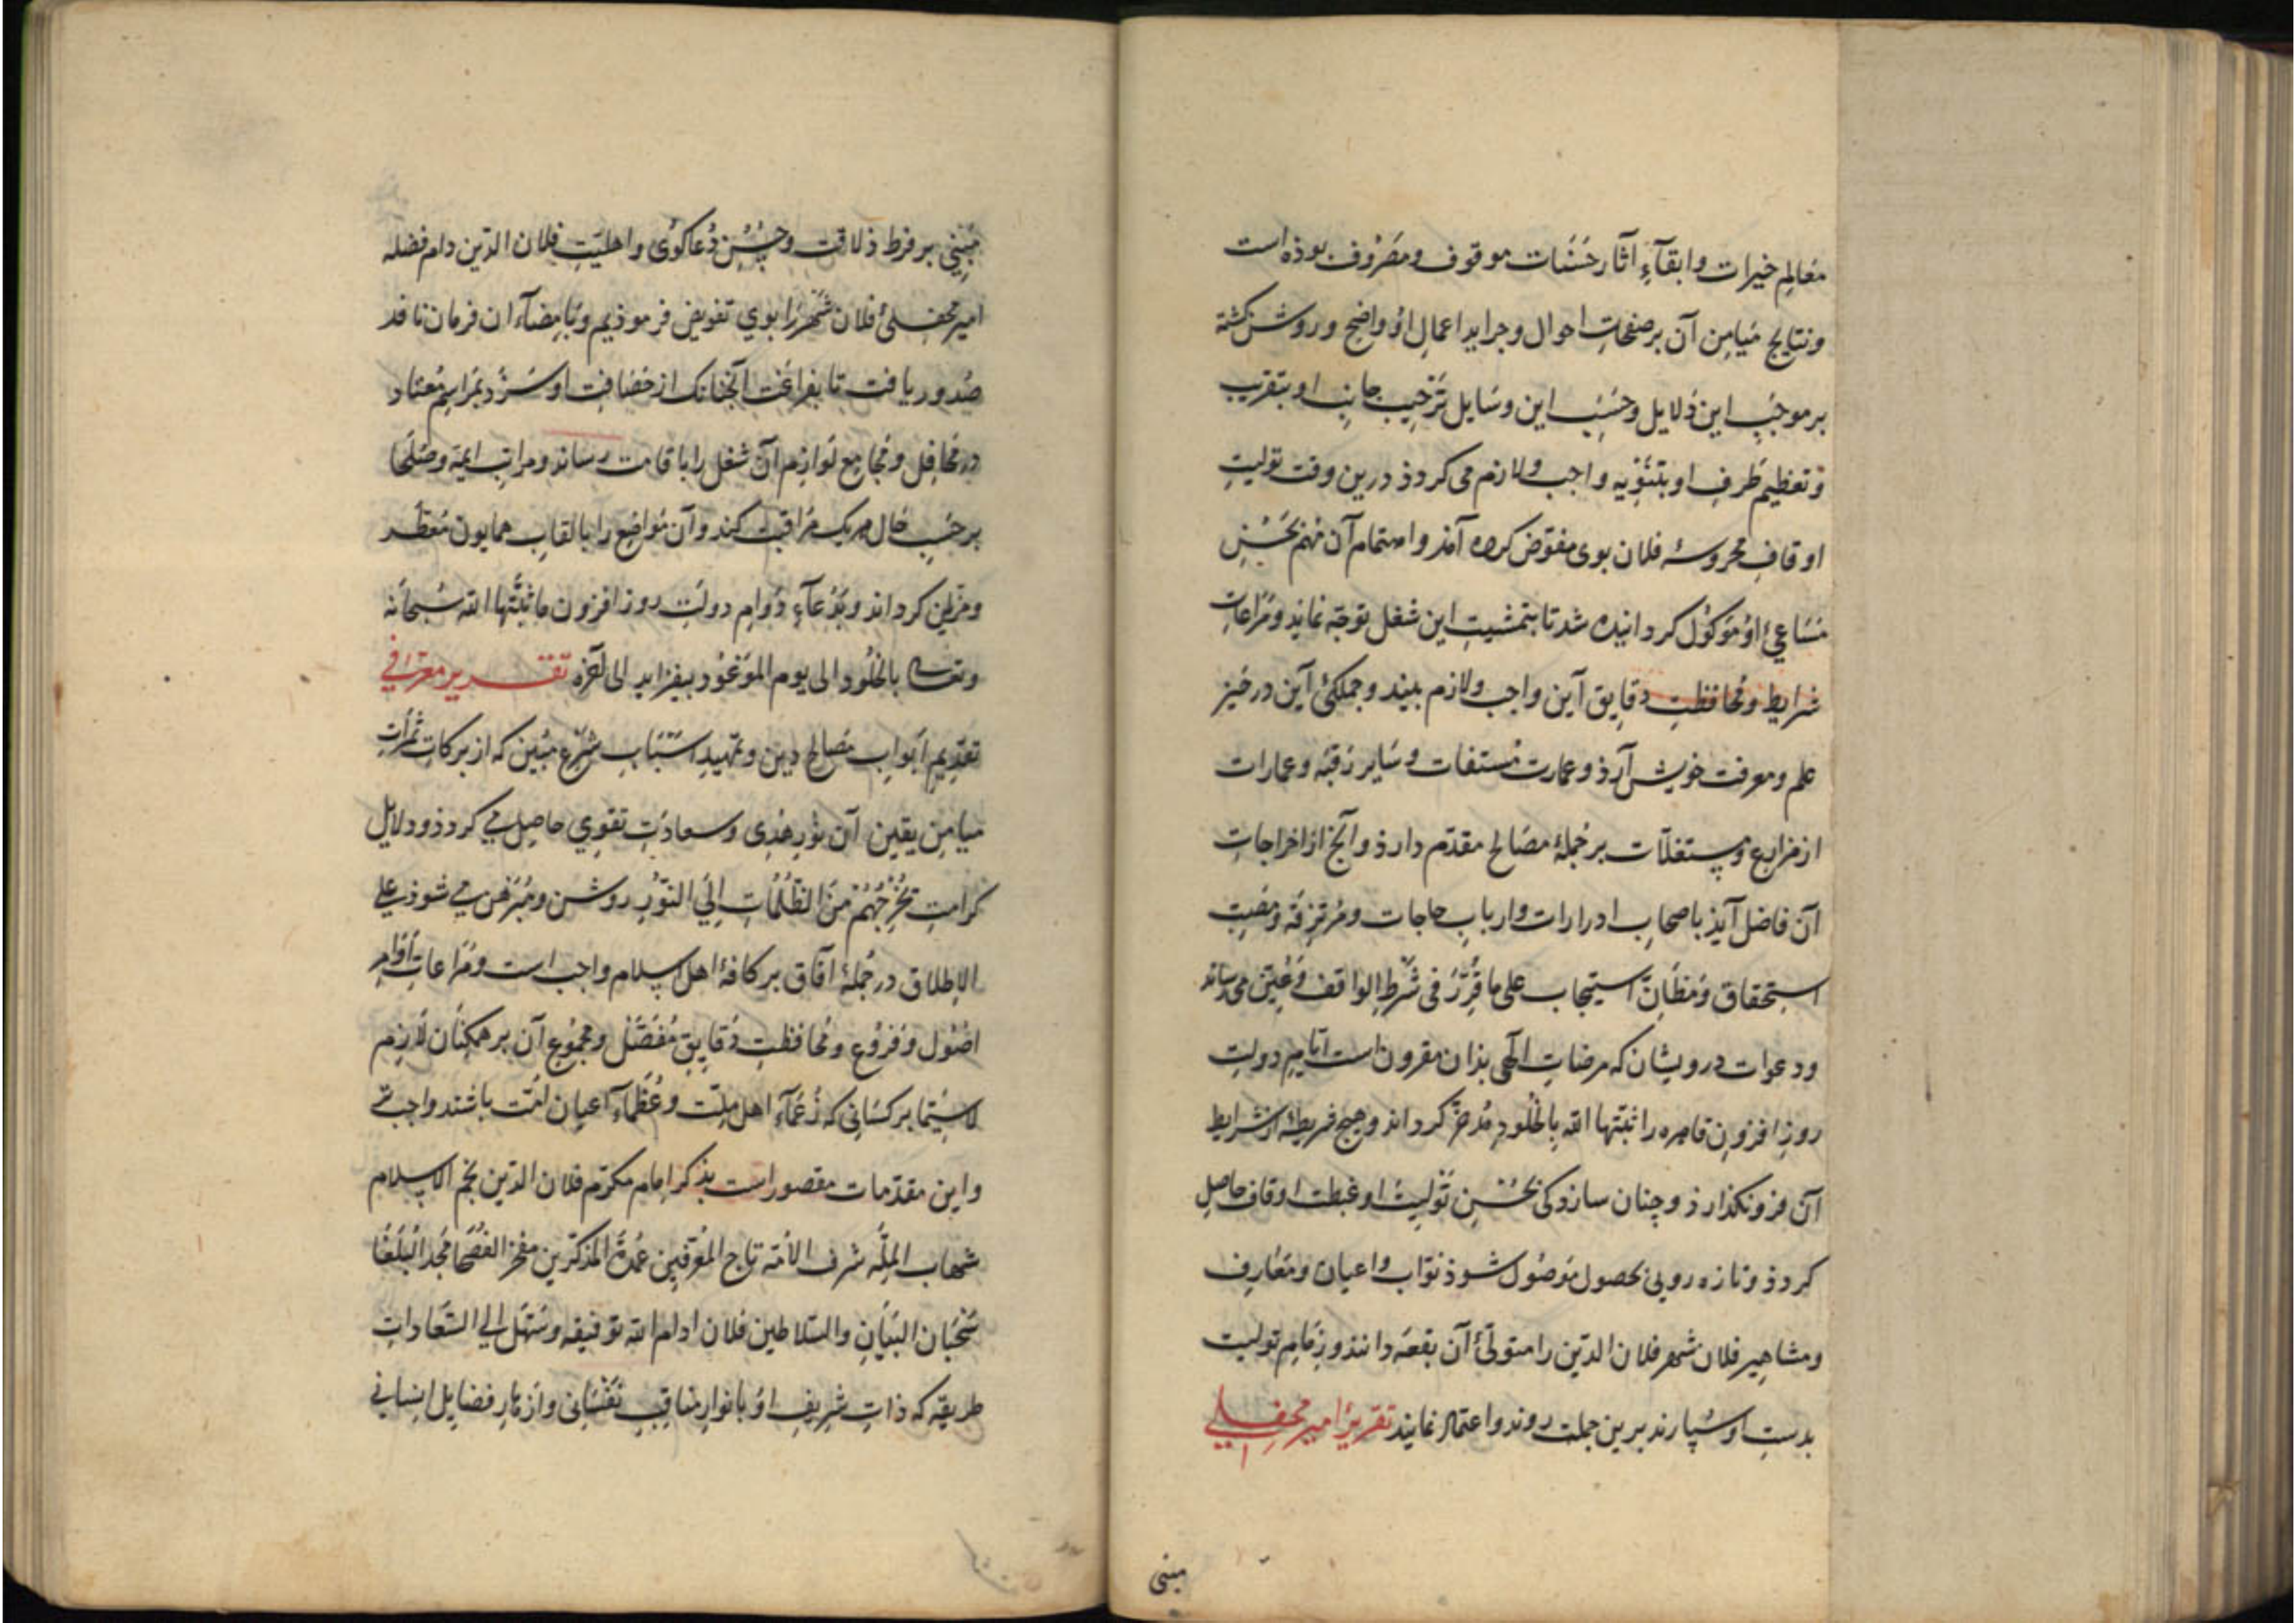 معالم خیرات وابقآءِ آثار حَسَنات موقوف ومَصْرُوف بوذه است
ونتایج مَیامِن آن بر صفحاتِ احوال وجرایدِ اعمالِ اوُ واضح وروشن کشته
بر موجَبِ این دَلایل وحَسَبِ این وسَایل تَرْحِیب جانبِ او بتقریب
وَتعْظیم طَرفِ او بتَنْویه واجب ولازم می کردذ درین وقت تولیتِ
اوقافِ محروسهٔ فلان بوی مفوّض کرده آمذ واهتمام آن مُهم بحُسْنِ
مَسَاعیِ اوُ مَوکوُل کردانیده شد تا بتمشیتِ این شغل توجّه نماید ومُرَاعاتِ
شرایط ومُحافظتِ دقایق آیین واجب ولازم بیند وجملکیٔ آین در حَیّز
علم ومعرفت خویش آرذ وعمارت مُستغلات وسَایر رَقبَه وعمارات
از مزارع ومستغلاّت بر جُملهٔ مصَالح مقدّم دارذ وآنچ از اخراجاتِ
آن فاضل آیذ باصحابِ ادرارات واربابِ حاجات ومُرتزِقه ومُصِبِّ
استحقاق ومَظَانّ استیجاب علی ما قُرِّرَ فی شَرْطِ الواقف وعُیّن می رساند
ودعوات درویشان که مرضاتِ الٓهی بذان مقرون است ایّامِ دولتِ
روز افزونِ قاهره را ثبّتها الله بالخُلودِ مُدخرّ کرداند وهیچ شریطه از شرایط
آن فرو نکذارذ وچنان سازد کی بحُسْنِ تَولیتِ او غبطت اوقاف حاصل
کردذ وتازه رویی بحصول مَوصُول شوذ نوّاب واعیان ومَعَارِف
ومشاهیر فلان شهر فلان الدّین را متولّیٔ آن بقعه دانند وزمام تولیت
بدستِ او سُپارند برین جملت روند واعتماد نمایند تقریرِ امیر محفلی
مبنی
مُبْنِی بر فرط ذلاقت وحُسْنِ دُعاکوُی واهلیّتِ فلان الدّین دام فضله
امیر محفلیٔ فلان شَهْر را بوی تفویض فرموذیم وبامضآءِ آن فرمان نافذ
صُدور یافت تا بفراغت آنچنانک از حَصَافتِ او سَزد بمَراسِم مُعتاد
در مَحَافِل ومَجَامع لوَازِم آن شغل را باقامت رساند ومراتبِ ایمّه وصُلَحَا
بر حَسَبِ حَال هریک مُرَاقبت کند وآن مَوَاضع را بالقابِ همایون مُعَطّر
ومزیّن کرداند وبدُعآءِ دَوامِ دولتِ روز افزون ما ثبّتها الله سُبحانه
وتعالی بالخُلُودِ الی یوم المَوعُود بیفزاید الی آخره تقـــریر معرّفی
تقدِیم اَبْوابِ مَصَالحِ دین وتمهیدِ اسْبَابِ شَرْعِ مُبین که از برکات ثَمَراتِ
میامِن یقین آن نوُرِ هُدَی وسعادَتِ تقوی حاصِل می کردذ ودلایل
کرامت یُخْرِجُهُمْ مِنَ الظُّلُمَاتِ اِلَی النُّورِ روشن ومُبَرْهَن می شوذ علی
الاِطلاق در جُملهٔ آفاق بر کافهٔ اهل اسلام واجب است ومُرَاعاتِ اَوَامِر
اصُول وَفرُوُع ومُحافظتِ دَقایِقِ مُفَصَّل ومجمُوع آن بر همکنَان لَازم
لاسِیّما بر کسَانی که زُعَمَآءِ اهل مِلّت وعُظَمَآءِ اَعیان اُمّت باشند واجب تر
واین مقدّمات مقصور است بذکر امام مکرّم فلان الدّین نجم الاسلام
شهاب المِلّه شرف الامّه تاج المُعَرّفین عُمدة المذکرّین مفخر الفُصَحَا مَجد البُلَغَا
سَحْبَان البَیَان والسّلاطین فلان ادام الله توفیقه وسَهّل الی السّعَاداتِ
طریقه که ذاتِ شریفِ اوُ بانوارِ مناقبِ نَفْسَانی وازهارِ فضایل انسانی